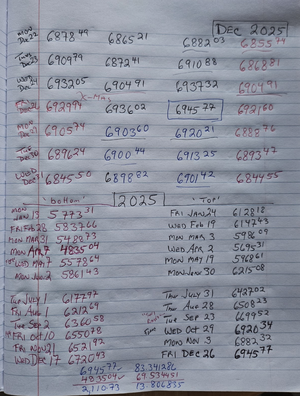 DEC 2025
MON Dec 22 6878 49 6865 21 6882 03 6855 74
Tue Dec 23 6909 79 6872 41 6910 88 6868 81
Wed Dec 24 6932 05 6904 91 6937 32 6904 91
X-Mas
Dec 26 6929 94 6936 02 6945 77 6921 60
MON Dec 29 6905 74 6903 60 6920 21 6888 76
Tue Dec 30 6896 24 6900 44 6913 25 6893 47
WED Dec 31 6845 50 6898 82 6901 42 6844 55
'bottom' 2025 'Top'
MON JAN 13 5773 31 FRI JAN 24 6128 18
FRI Feb 28 5837 66 Wed Feb 19 6147 43
MON Mar 31 5488 73 MON Mar 3 5986 09
MON Apr 7 4835 04 Wed Apr 2 5695 31
WED MAY 7 5578 64 MON May 19 5968 61
MON June 2 5861 43 MON June 30 6215 08
Tue July 1 6177 97 Thur July 31 6427 02
FRI Aug 1 6212 69 Thur Aug 28 6508 23
Tue Sep 2 6360 58 Tue Sep 23 6699 52
FRI Oct 10 6550 78 Wed Oct 29 6920 34
FRI Nov 21 6521 92 MON Nov 3 6882 32
WED DEC 17 6720 43 FRI DEC 26 6945 77
6945 77 83.341286
4835 04 69.534451
2,110.73 13.806835